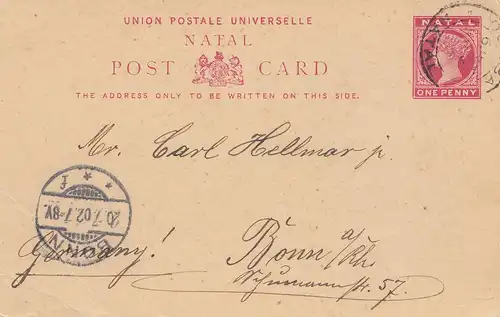 UNION POSTALE UNIVERSELLE
NATAL
POST CARD
THE ADDRESS ONLY TO BE WRITTEN ON THIS SIDE.
NATAL
ONE PENNY
Mr. Carl Hellmar jr.
Bonn a/Rh.
Germany!
Schumannstr. 57.
BONN
20.7.02.7-8V.
* f *